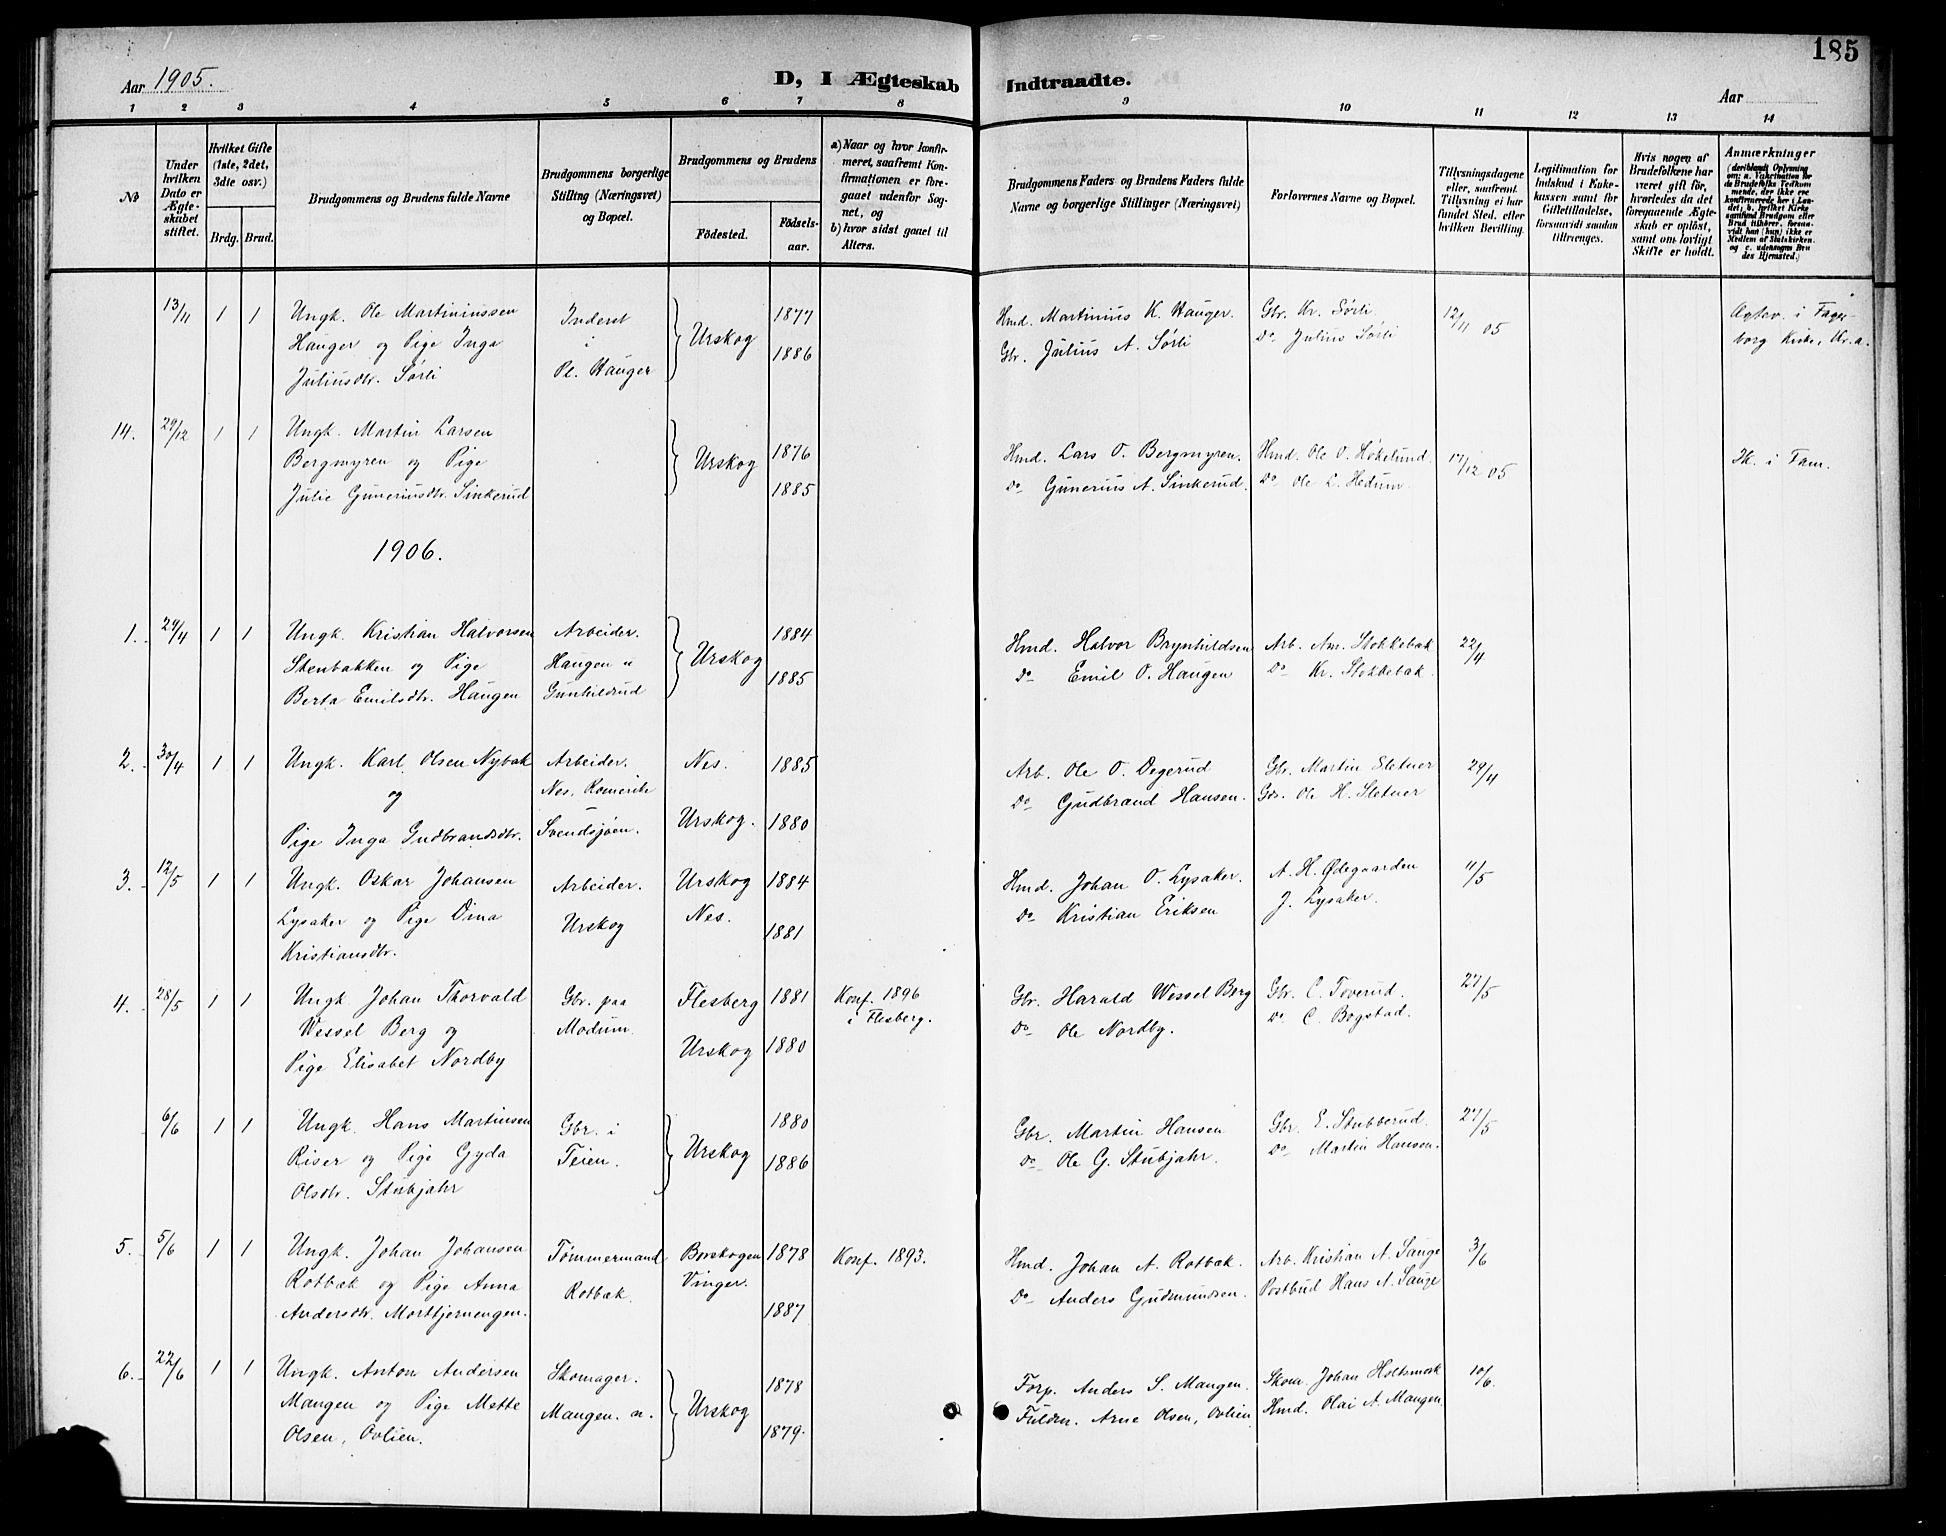 185
Aar 1905.
D, I Ægteskab Indtraadte.
Aar
1 2 3 4 5 6 7 8 9 10 11 12 13 14
No
Under hvilken Dato er Ægteskabet stiftet.
Hvilket Gifte (1ste, 2det, 3die osv.)
Brdg. Brud.
Brudgommens og Brudens fulde Navne
Brudgommens borgerlige Stilling (Næringsvet) og Bopæl.
Brudgommens og Brudens
Födested.
Födselsaar.
a) Naar og hvor konfirmeret, saafremt Konfirmationen er foregaaet udenfor Sognet, og
b) hvor sidst gaaet til Alters.
Brudgommens Faders og Brudens Faders fulde Navne og borgerlige Stillinger (Næringsvet)
Forlovernes Navne og Bopæl.
Tillysningsdagene eller, saafremt Tillysning ei har fundet Sted, efter hvilken Bevilling.
Legitimation for Indskud i Enkekassen samt for Giftetilladelse, forsaavidt saadan tiltrænges.
Hvis nogen af Brudefolkene har været gift för, hvorledes da det foregaaende Ægteskab er oplöst, samt om lovligt Skifte er holdt.
Anmærkninger
13/11 1 1 Ungk. Ole Martiniussen
Hauger og Pige Inga
Juliusdtr. Sørli
Inderst
i
Pl. Hauger
Urskog
1877
1886
Hmd. Martinius K. Hauger.
Gbr. Julius A. Sørli
Gbr. Kr. Sørli
Do Julius Sørli
12/11 05
borg Kirke, Kr.a.
14. 29/12 1 1 Ungk. Martin Larsen
Bergmyren og Pige
Julie Gunerius­dtr. Sinkerud
Urskog
1876
1885
Hmd. Lars O. Bergmyren.
Do Gunerius A. Sinkerud.
Hmd. Ole O. Høkelund.
Do Ole L. Hedum.
17/12 05
Sk. i Fam.
1906.
1. 29/4 1 1 Ungk. Kristian Halvorsen
Stenbakken og Pige
Berta Emilsdtr. Haugen
Arbeider.
Haugen u
Gunhildrud
Urskog
1884
1885
Hmd. Halvor Brynhildsen
Do Emil O. Haugen
Arb. Am. Stokkebæk
Do Kr. Stokkebæk.
22/4
2. 30/4 1 1 Ungk. Karl Olsen Nybak
og
Pige Inga Gudbrandsdtr.
Arbeider.
Nes, Romerike
Svendsjøen.
Nes.
Urskog.
1885
1880
Arb. Ole O. Degerud
Do Gudbrand Hansen.
Gbr. Martin Sletner
Gds. Ole H. Sletner
29/4
3. 12/5 1 1 Ungk. Oskar Johansen
Lysaker og Pige Dina
Kristiansdtr.
Arbeider.
Urskog
Urskog
Nes.
1884
1881
Hmd. Johan O. Lysaker.
Do Kristian Eriksen
A. H. Ødegaarden
J. Lysaker.
11/5
4. 28/5 1 1 Ungk Johan Thorvald
Wessel Berg og
Pige Elisabet Nordby
Gbr. paa
Modum.
Flesberg
Urskog
1881
1880
Konf. 1896
i Flesberg.
Gbr. Harald Wessel Berg
Do Ole Nordby.
Gbr. C. Toverud.
Do C. Bogstad.
27/5
6/6 1 1 Ungk. Hans Martinsen
Riser og Pige Gyda
Olsdtr. Stubjahr
Gbr. i
Teien.
Urskog
1880
1886
Gbr. Martin Hansen
Do Ole G. Stubjahr.
Gbr. E. Stubberud.
Do Martin Hansen.
27/5
5. 5/6 1 1 Ungk. Johan Johansen
Rotbæk og Pige Anna
Andersdtr. Morttjernengen.
Tømmermand
Rotbæk
Borskogen
Vinger.
1878
1887
Konf. 1893.
Hmd. Johan A. Rotbæk.
Do Anders Gudmundsen.
Arb. Kristian A. Sauge
Postbud Hans A. Sauge
3/6
6. 22/6 1 1 Ungk. Anton Andersen
Mangen og Pige Mette
Olsen, Ovlien.
Skomager.
Mangen. n.
Urskog
1878
1879.
Forp. Anders S. Mangen.
Fuldm. Arne Olsen, Ovlien
Skom. Johan Holtsmark
Hmd. Olai A. Mangen
10/6.